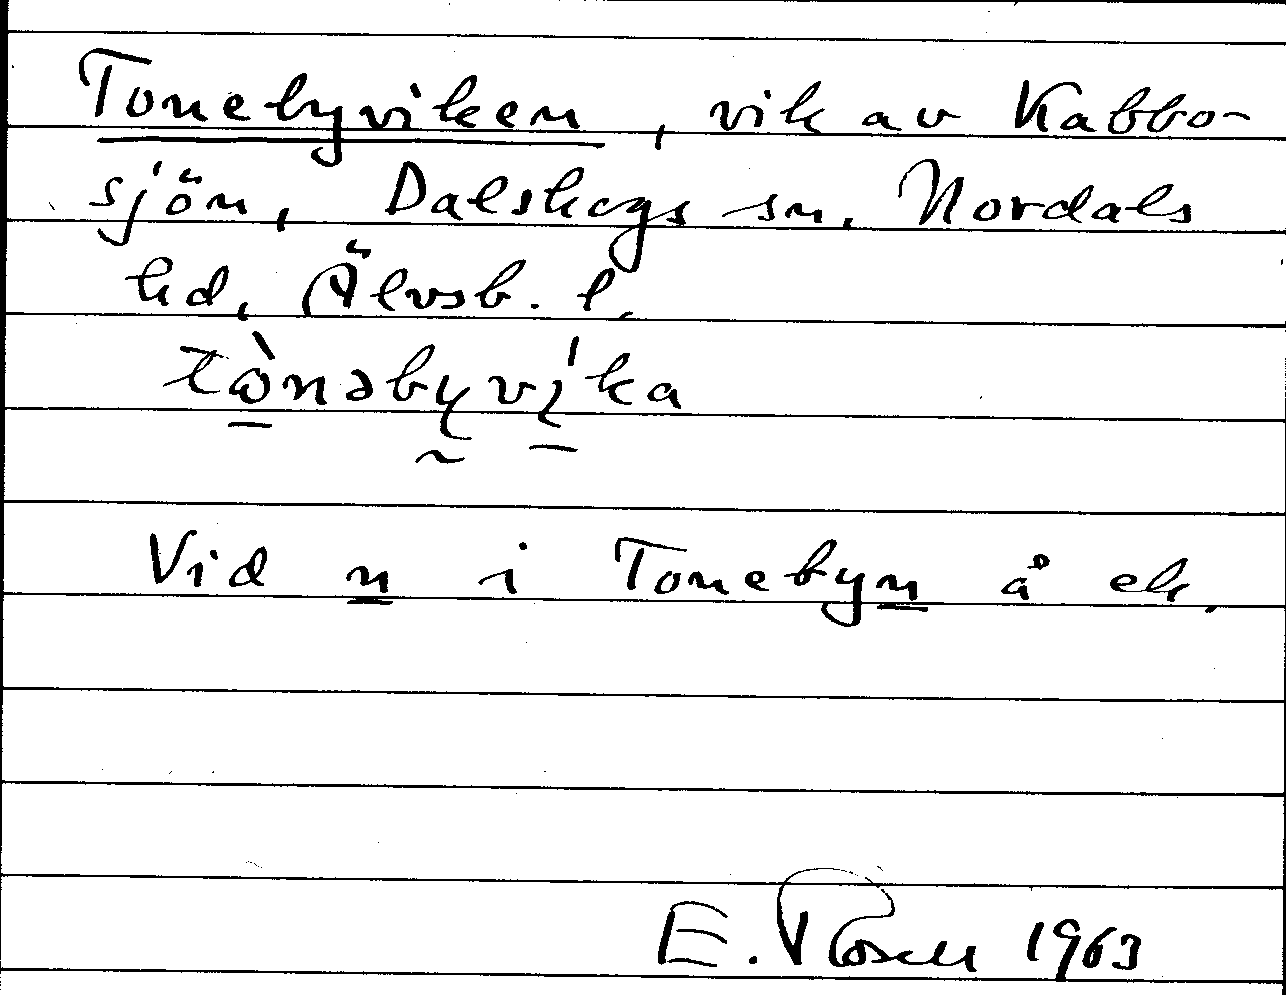 Tonebyviken, vik av Kabbo-
sjön, Dalskogs sn, Nordals
hd, Älvsb. l.
tὼnəbyvi̇́ka
Vid n i Tonebyn å ek.
E. Rosell 1963